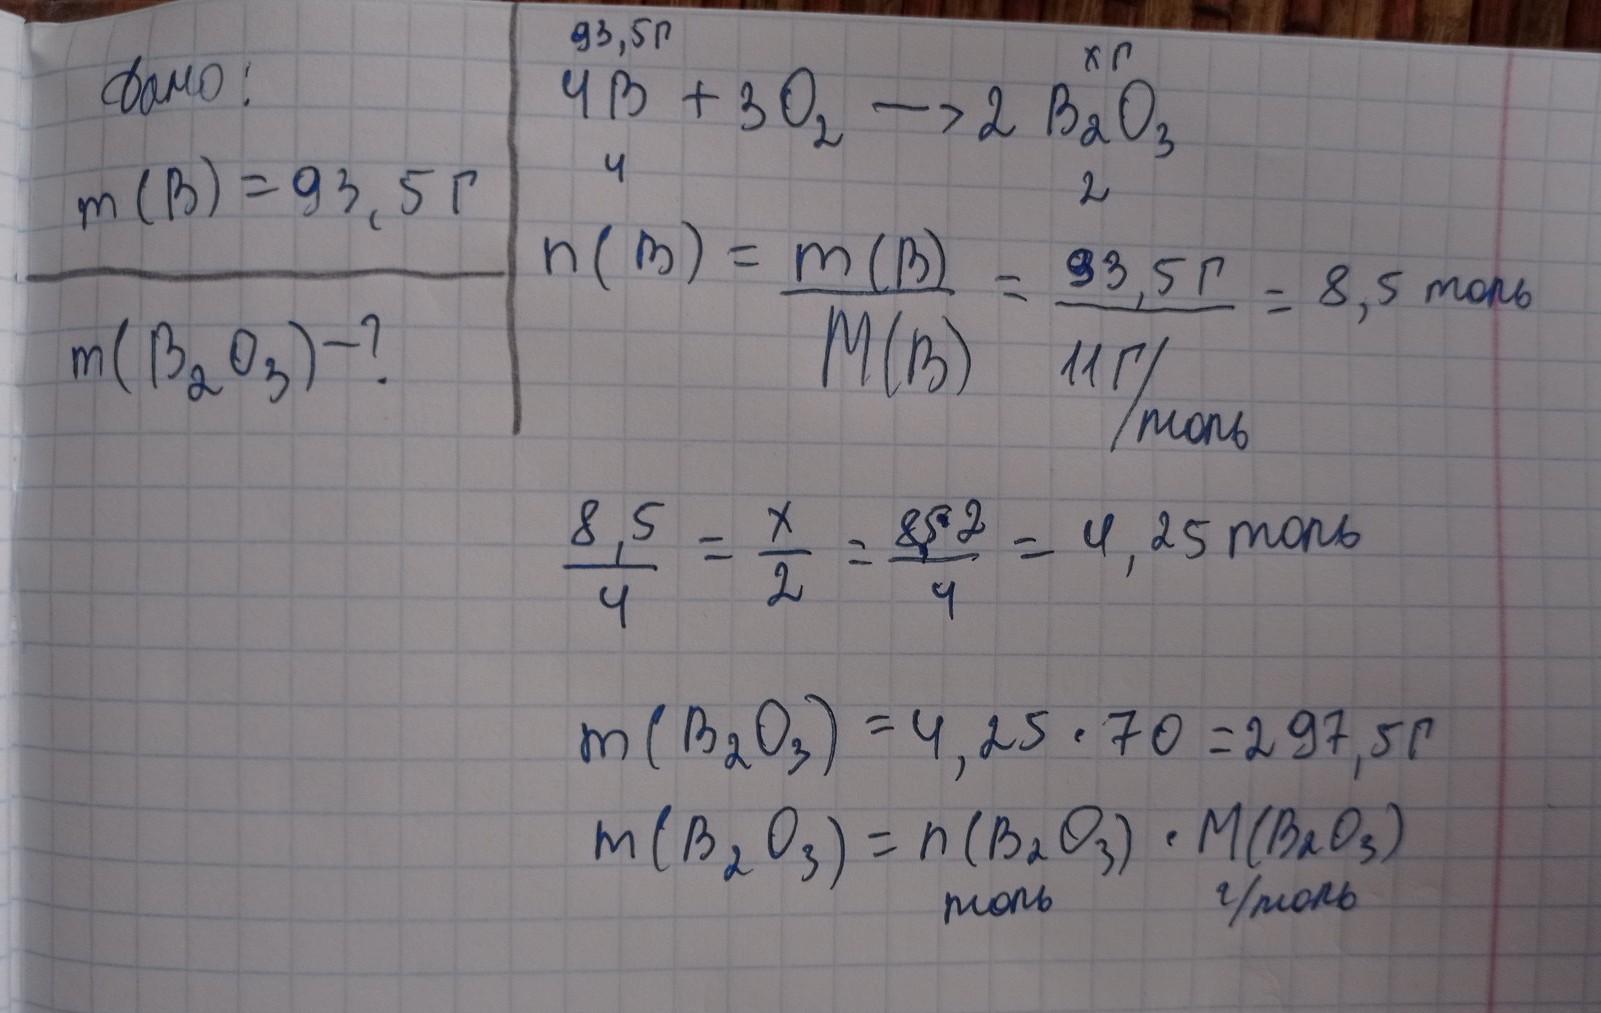 Дано:
m(B) = 93,5 г
m(B₂O₃) - ?
93,5 г
x г
4B + 3O₂ → 2 B₂O₃
4
2
n(B) = m(B)/M(B) = 93,5 г/11 г/моль = 8,5 моль
8,5/4 = x/2 = 8,5·2/4 = 4,25 моль
m(B₂O₃) = 4,25 · 70 = 297,5 г
m(B₂O₃) = n(B₂O₃) · M(B₂O₃)
моль г/моль